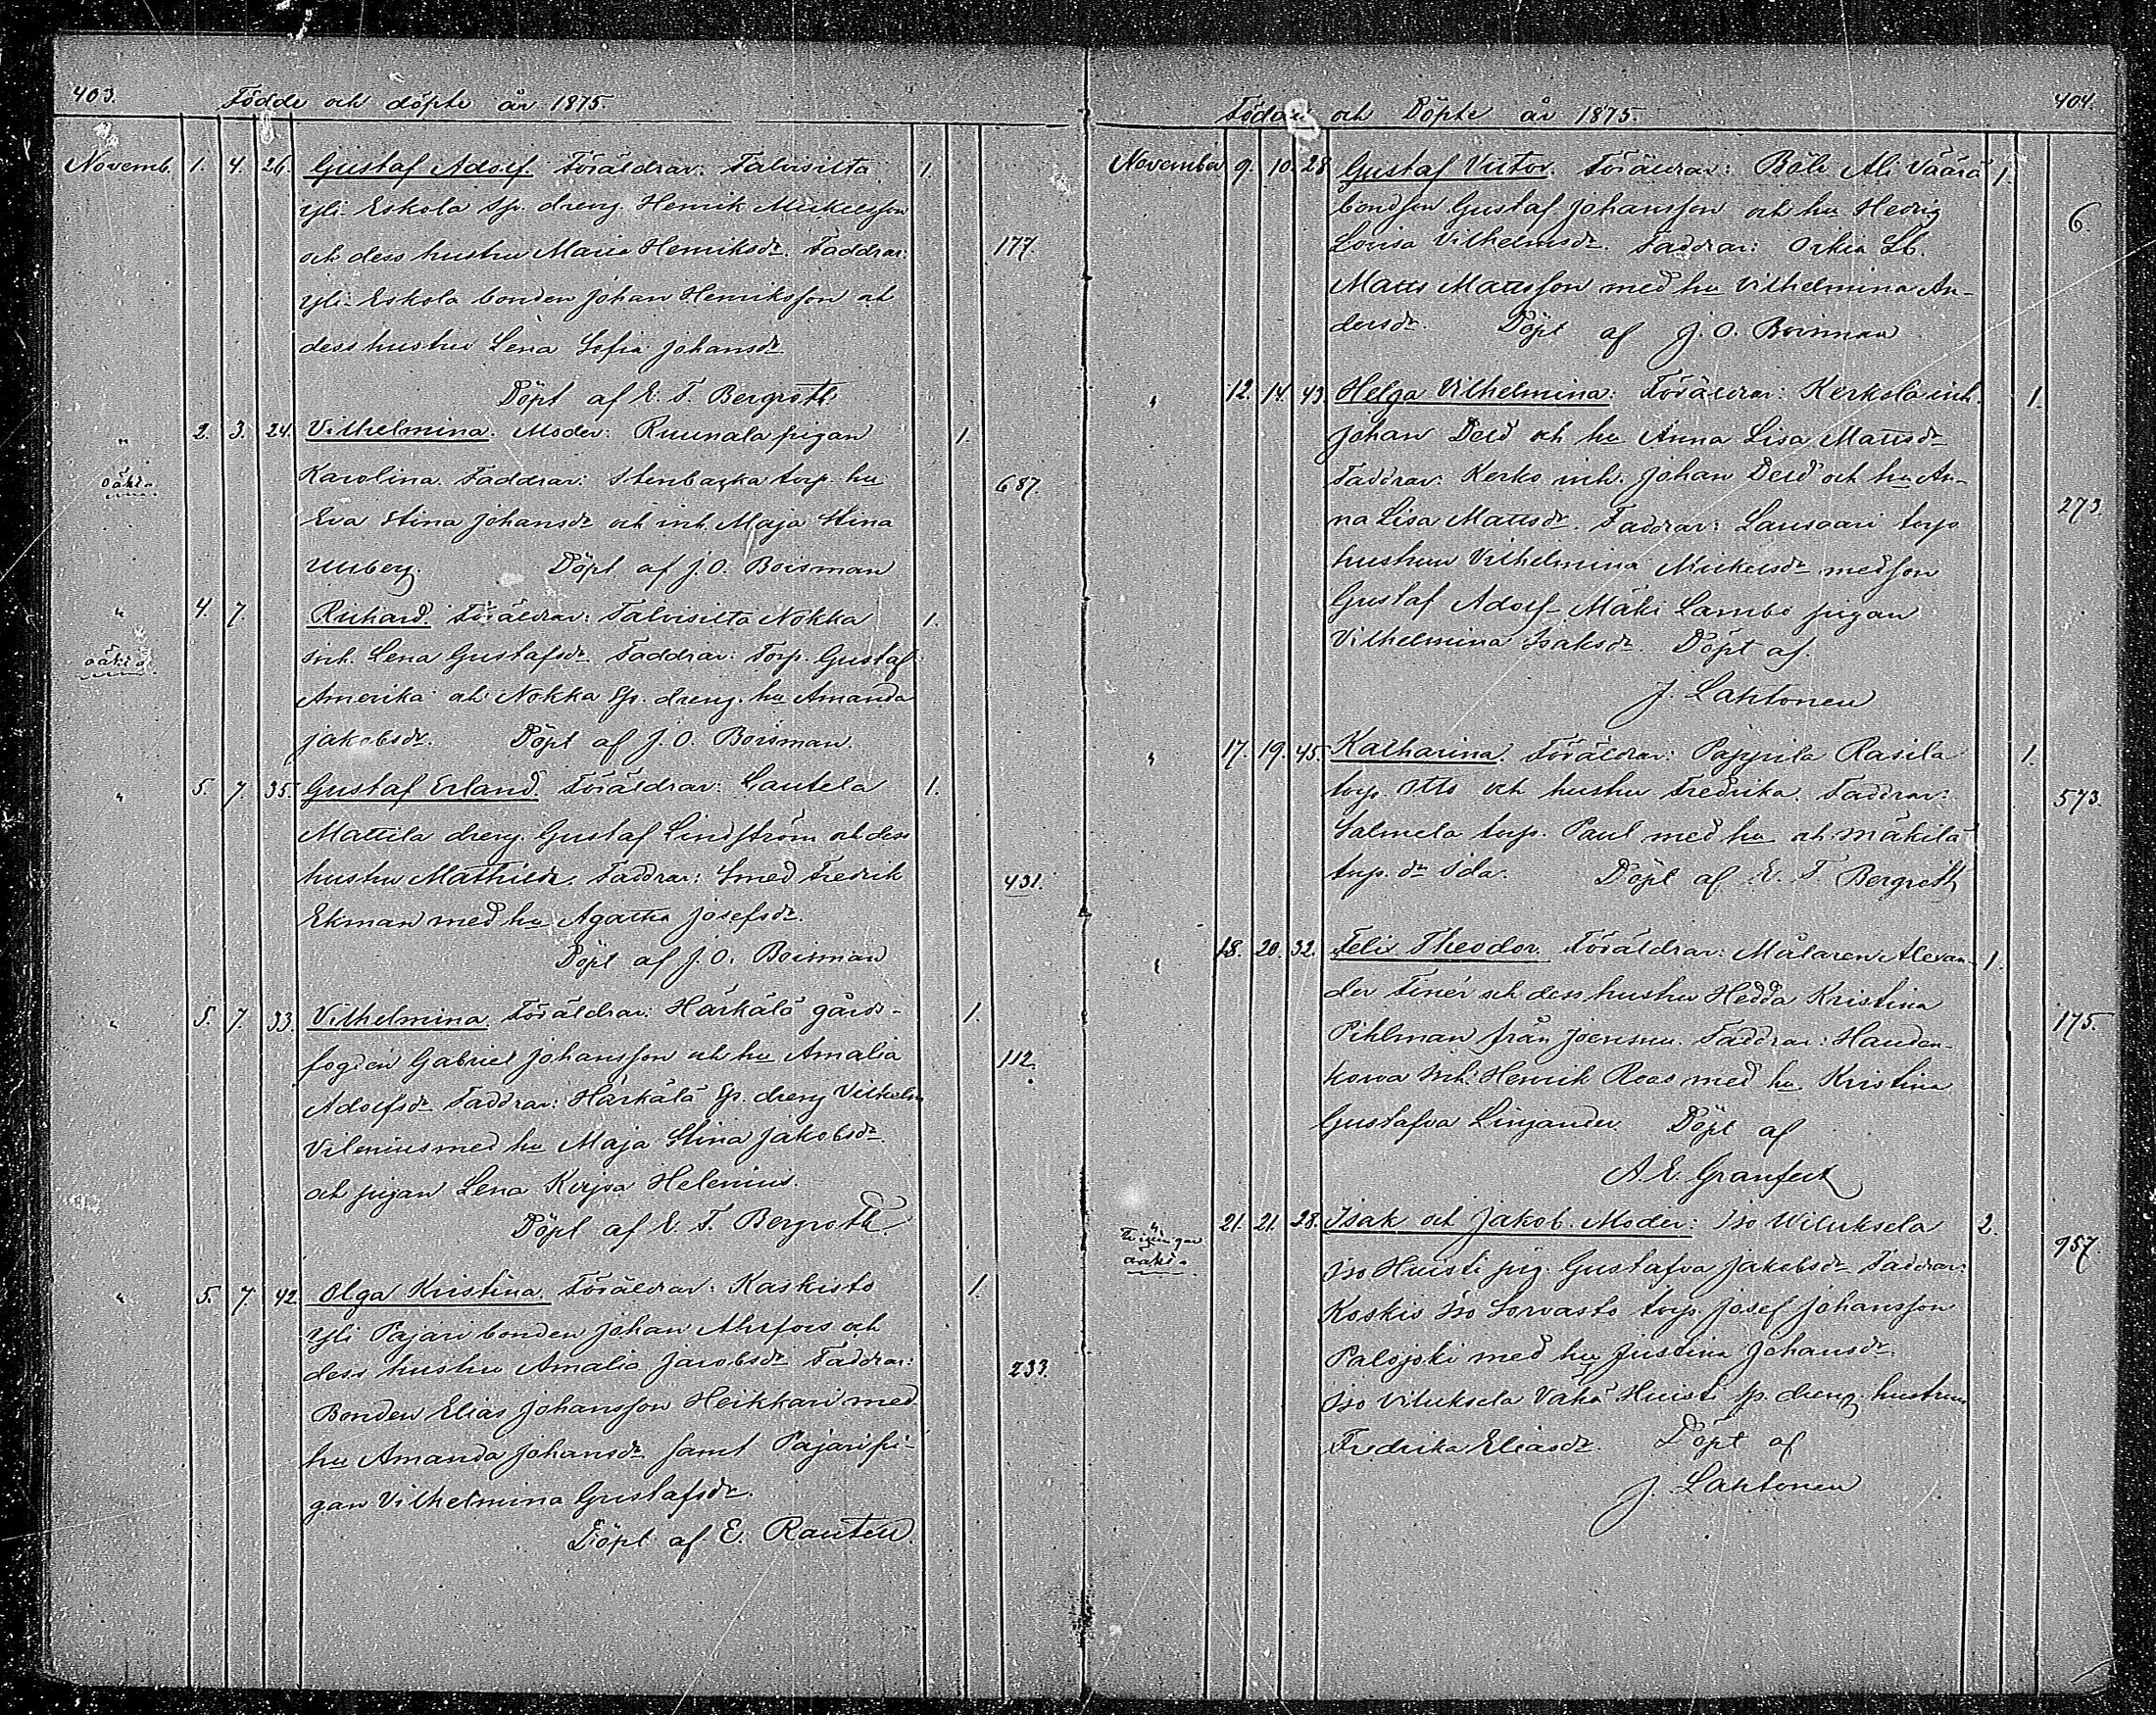 403.
Födde och döpte år 1875.
Novemb. 1. 4. 26. Gustaf Adolf. Föräldrar: Talvisilta 1.
Yli Eskola sp. dreng. Henrik Mickelsson
och dess hustru Maria Henriksdr. Faddrar: 177.
Yli Eskola bonden Johan Henriksson och
dess hustru Lena Sofia Johansdr.
Döpt af E. F. Bergroth
" 2. 3. 24. Vilhelmina. Moder: Ruunala pigan 1.
oäkta Karolina. Faddrar: Stenbacka torp. hu 687.
Eva Stina Johansdr och inh. Maja Stina
Döpt af J. O. Boisman
" 4. 7. Richard. Föräldrar: Talvisilta Nokka 1.
oäkta inh. Lena Gustafsdr Faddrar: Torp. Gustaf
Amerika och Nokka sp. dreng. hu Amanda
Jakobsdr. Döpt af J. O. Boisman.
" 5. 7. 35. Gustaf Erland. Föräldrar: Lautela 1.
Mattila dreng. Gustaf Lindström och dess
hustru Mathilda. Faddrar: Smed Fredrik 431.
Ekman med hu Agatha Josefsdr.
Döpt af J. O. Boisman
" 5. 7. 33. Vilhelmina. Föräldrar: Härkälä gårds- 1.
fogden Gabriel Johansson och hu Amalia 112.
Adolfsdr Faddrar: Härkälä sp. dreng Vilhelm
Vilenius med hu Maja Stina Jakobsdr
och pigan Lena Kirjva Helenius.
Döpt af E. F. Bergroth.
" 5. 7. 42. Olga Kristina. Föräldrar: Kaskisto 1.
Yli Pajari bonden Johan Ahlfors och
dess hustru Amalia Jacobsdr Faddrar: 233.
Bonden Elias Johansson Heikkari med
hu Amanda Johansdr samt Pajari pi-
gan Vilhelmina Gustafsdr.
Döpt af E. Rautell.
404.
Födde och Döpte år 1875.
November 9. 10. 28 Gustaf Victor. Föräldrar: Böle Ali Väärä 1.
bondson Gustaf Johansson och hu Hedvig 6.
Lovisa Vilhelmsdr. Faddrar: Orkia Lb.
Matts Mattsson med hu Vilhelmina An-
dersdr. Döpt af J. O. Boisman
" 12. 14. 43. Helga Vilhelmina: Föräldrar: Kerkola inh. 1.
Johan Deld och hu Anna Lisa Mattsdr
Faddrar: Kerko inh. Johan Deld och hu An-
na Lisa Mattsdr. Faddrar: Lausaari torp 273.
hustrun Vilhelmina Mickelsdr med son
Gustaf Adolf Mäki Lambo pigan
Vilhelmina Isaksdr. Döpt af.
J. Lahtonen
" 17. 19. 45. Katharina. Föräldrar: Pappila Rasila 1.
torp. Otto och hustru Fredrika. Faddrar: 573.
Salmela torp. Paul med hu och Mäkilä
torp. dr Ida. Döpt af E. F. Bergroth
" 18. 20. 32. Felix Theodor. Föräldrar: Målaren Alexan- 1.
der Finér och dess hustru Hedda Kristina
Pihlman från Joensuu. Faddrar: Hauden- 175.
korva inh. Henrik Roos med hu Kristina
Gustafva Linjander. Döpt af
A. E. Granfelt
Tvillingar 21. 21. 28. Isak och Jakob. Moder: Iso Wiluksela 2.
oäkta Iso Huisti pig. Gustafva Jakobsdr Faddrar: 957.
Koskis Iso Sorvasto torp Josef Johansson
Palojoki med hu Justina Johansdr.
Iso Viluksela Vähä Huisti sp. dreng. hustrun
Fredrika Eliasdr. Döpt af
J. Lahtonen